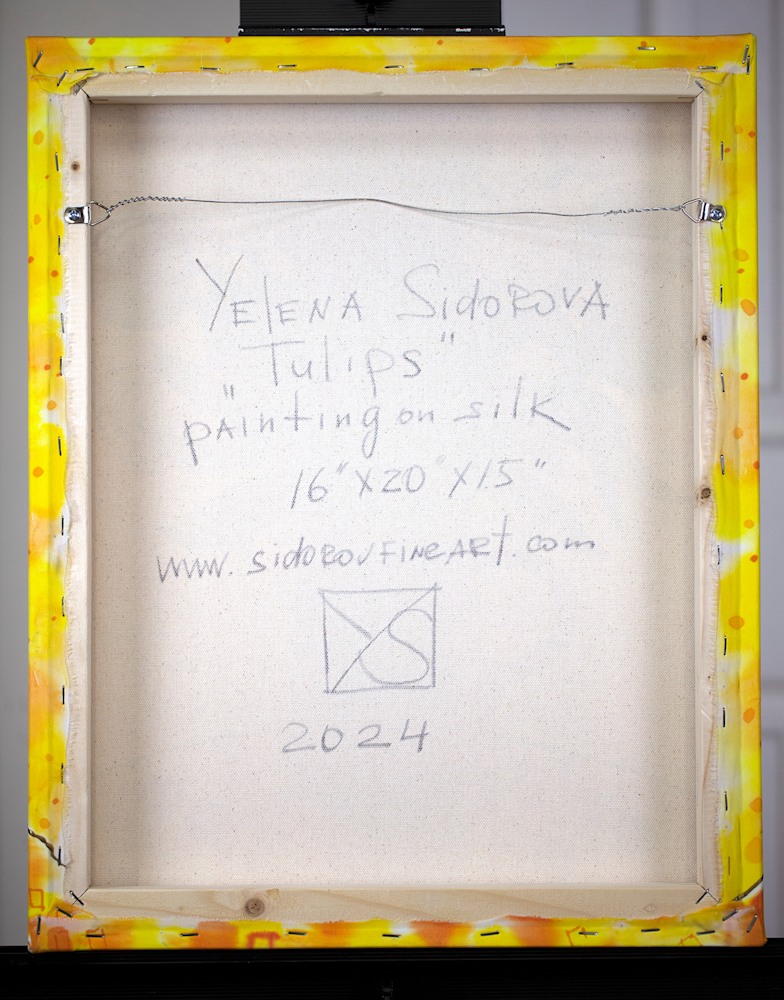 Yelena Sidorova
"Tulips"
painting on silk
16" x 20" x 1.5"
www.sidorovfineart.com
YS
2024